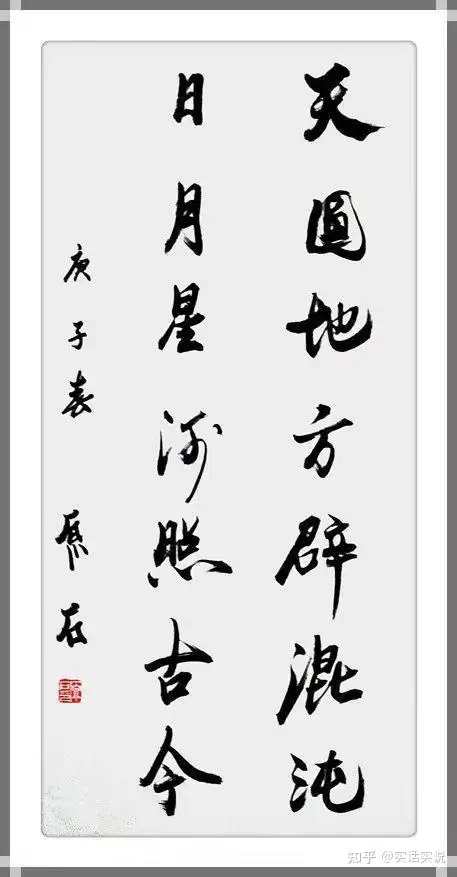 天圓地方辟混沌
日月星河照古今
庚子春
知乎 @实话实说